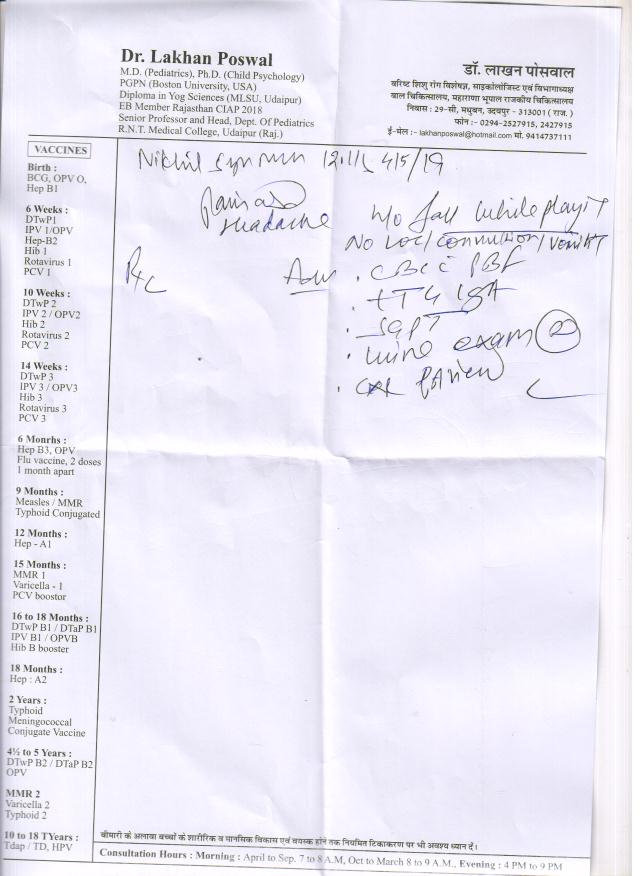 Dr. Lakhan Poswal
M.D. (Pediatrics), Ph.D. (Child Psychology)
PGPN (Boston University, USA)
Diploma in Yog Sciences (MLSU, Udaipur)
EB Member Rajasthan CIAP 2018
Senior Professor and Head, Dept. Of Pediatrics
R.N.T. Medical College, Udaipur (Raj.)
डॉ. लाखन पोसवाल
वरिष्ट शिशु रोग विशेषज्ञ, साइकोलोजिस्ट एवं विभागाध्यक्ष
बाल चिकित्सालय, महाराणा भूपाल राजकीय चिकित्सालय
निवास : 29-सी, मधुबन, उदयपुर - 313001 ( राज. )
फोन :- 0294-2527915, 2427915
ई-मेल :- lakhanposwal@hotmail.com मो. 9414737111
VACCINES
Birth :
BCG, OPV O,
Hep B1
6 Weeks :
DTwP1
IPV 1/OPV
Hep-B2
Hib 1
Rotavirus 1
PCV 1
10 Weeks :
DTwP 2
IPV 2 / OPV2
Hib 2
Rotavirus 2
PCV 2
14 Weeks :
DTwP 3
IPV 3 / OPV3
Hib 3
Rotavirus 3
PCV 3
6 Monrhs :
Hep B3, OPV
Flu vaccine, 2 doses
1 month apart
9 Months :
Measles / MMR
Typhoid Conjugated
12 Months :
Hep - A1
15 Months :
MMR 1
Varicella - 1
PCV boostor
16 to 18 Months :
DTwP B1 / DTaP B1
IPV B1 / OPVB
Hib B booster
18 Months :
Hep : A2
2 Years :
Typhoid
Meningococcal
Conjugate Vaccine
4½ to 5 Years :
DTwP B2 / DTaP B2
OPV
MMR 2
Varicella 2
Typhoid 2
10 to 18 TYears :
Tdap / TD, HPV
Nikhil 4/5/19
Headache
H/o fall while playing
No LOC/convulsion/vomit
Adv . CBC PBF
. tTG IgA
. SGPT
. urine exam
बीमारी के अलावा बच्चों के शारीरिक व मानसिक विकास एवं वयस्क होने तक नियमित टिकाकरण पर भी अवश्य ध्यान दें।
Consultation Hours : Morning : April to Sep. 7 to 8 A.M, Oct to March 8 to 9 A.M., Evening : 4 PM to 9 PM